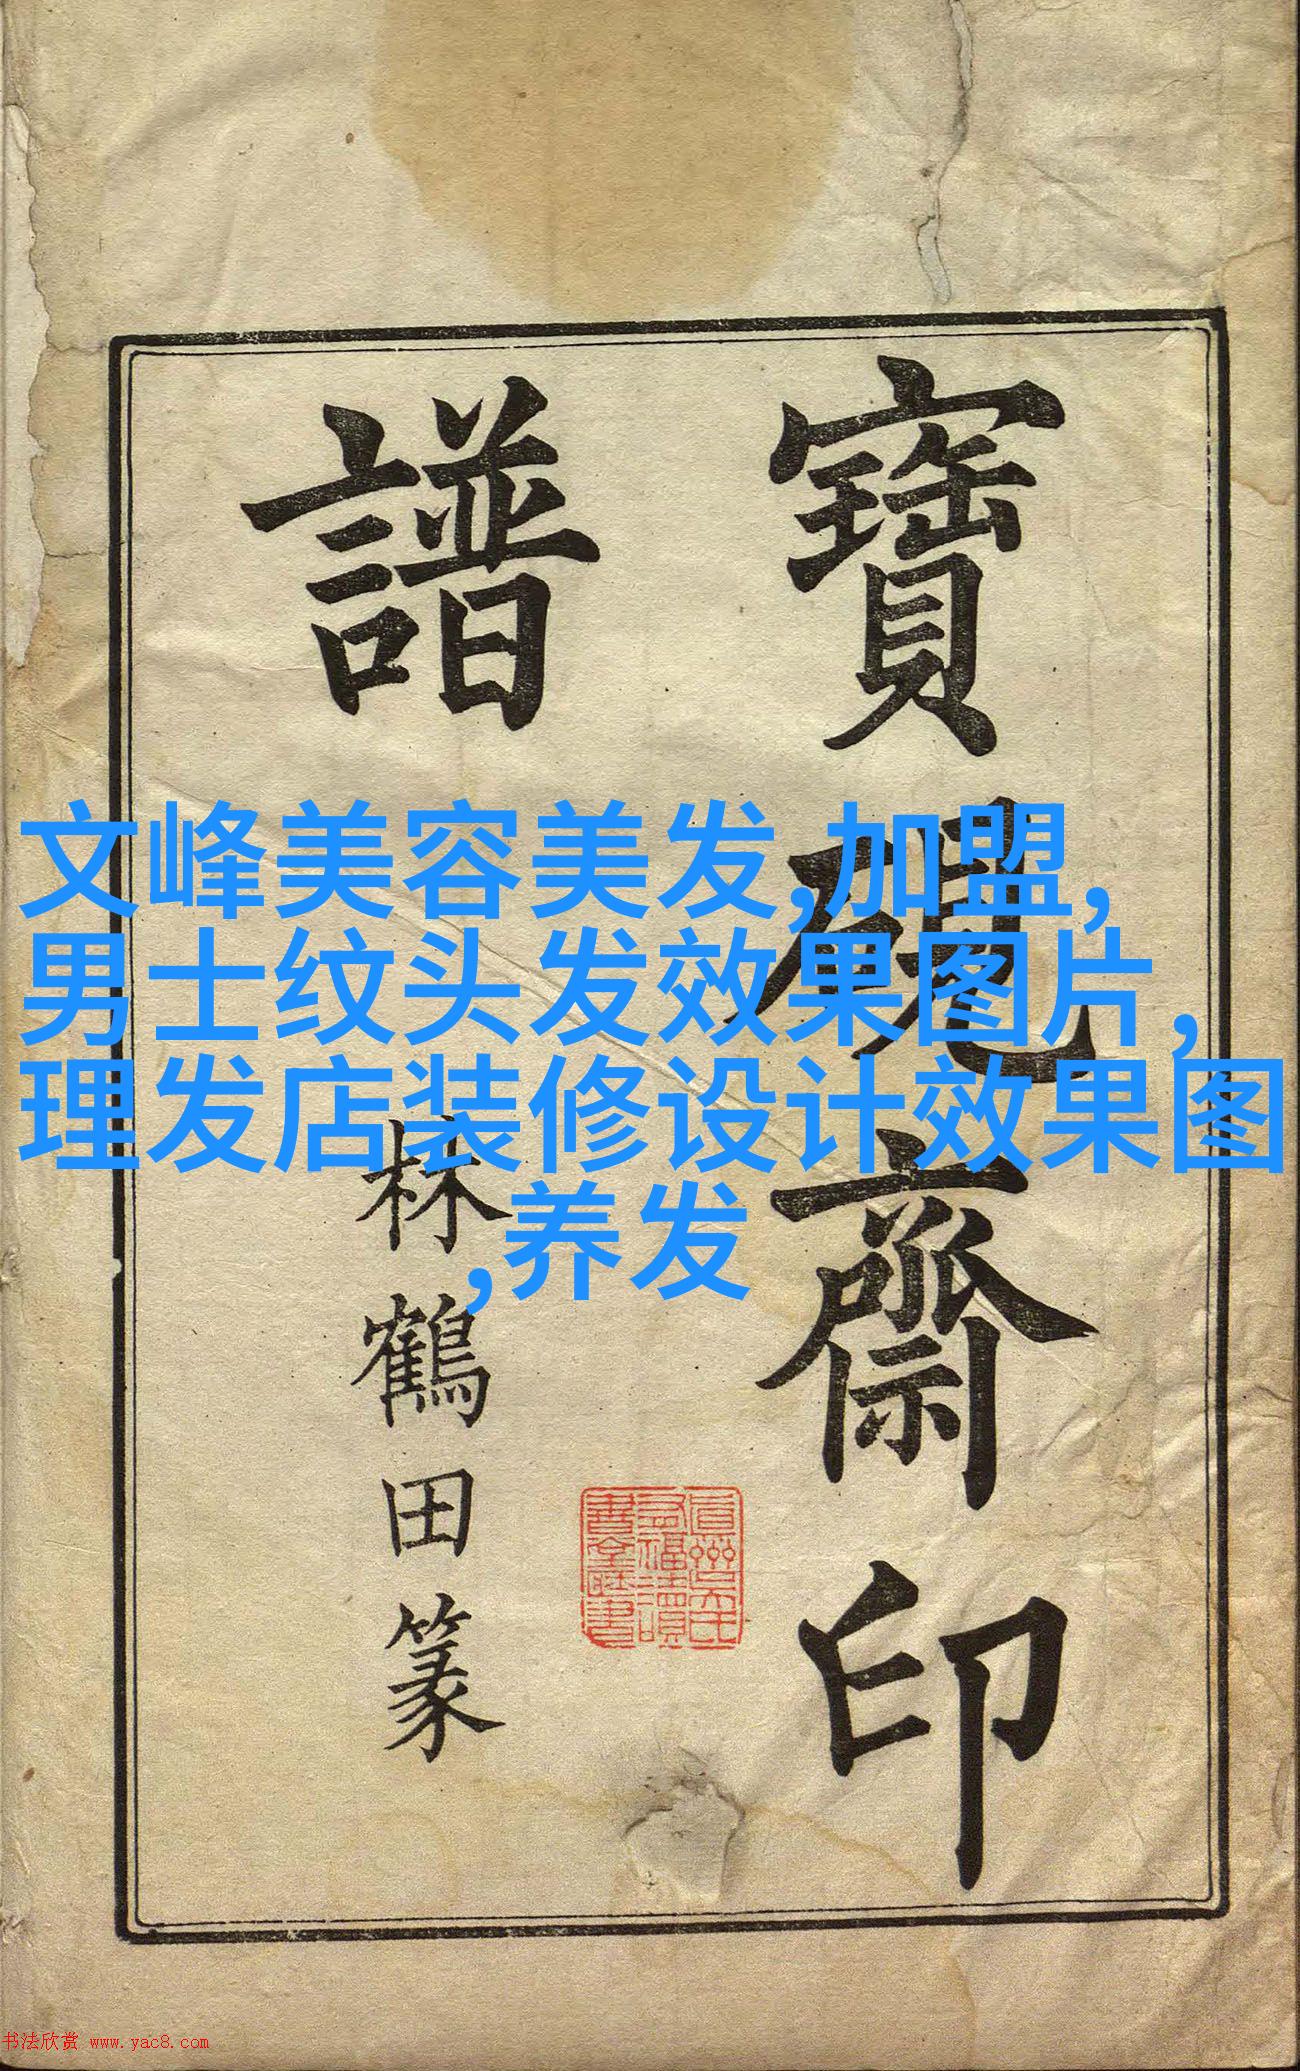 寶硯齋印
譜
林鶴田篆
文峰美容美发,加盟,
男士纹头发效果图片,
理发店装修设计效果图
,养发
书法欣赏 www.yac8.com